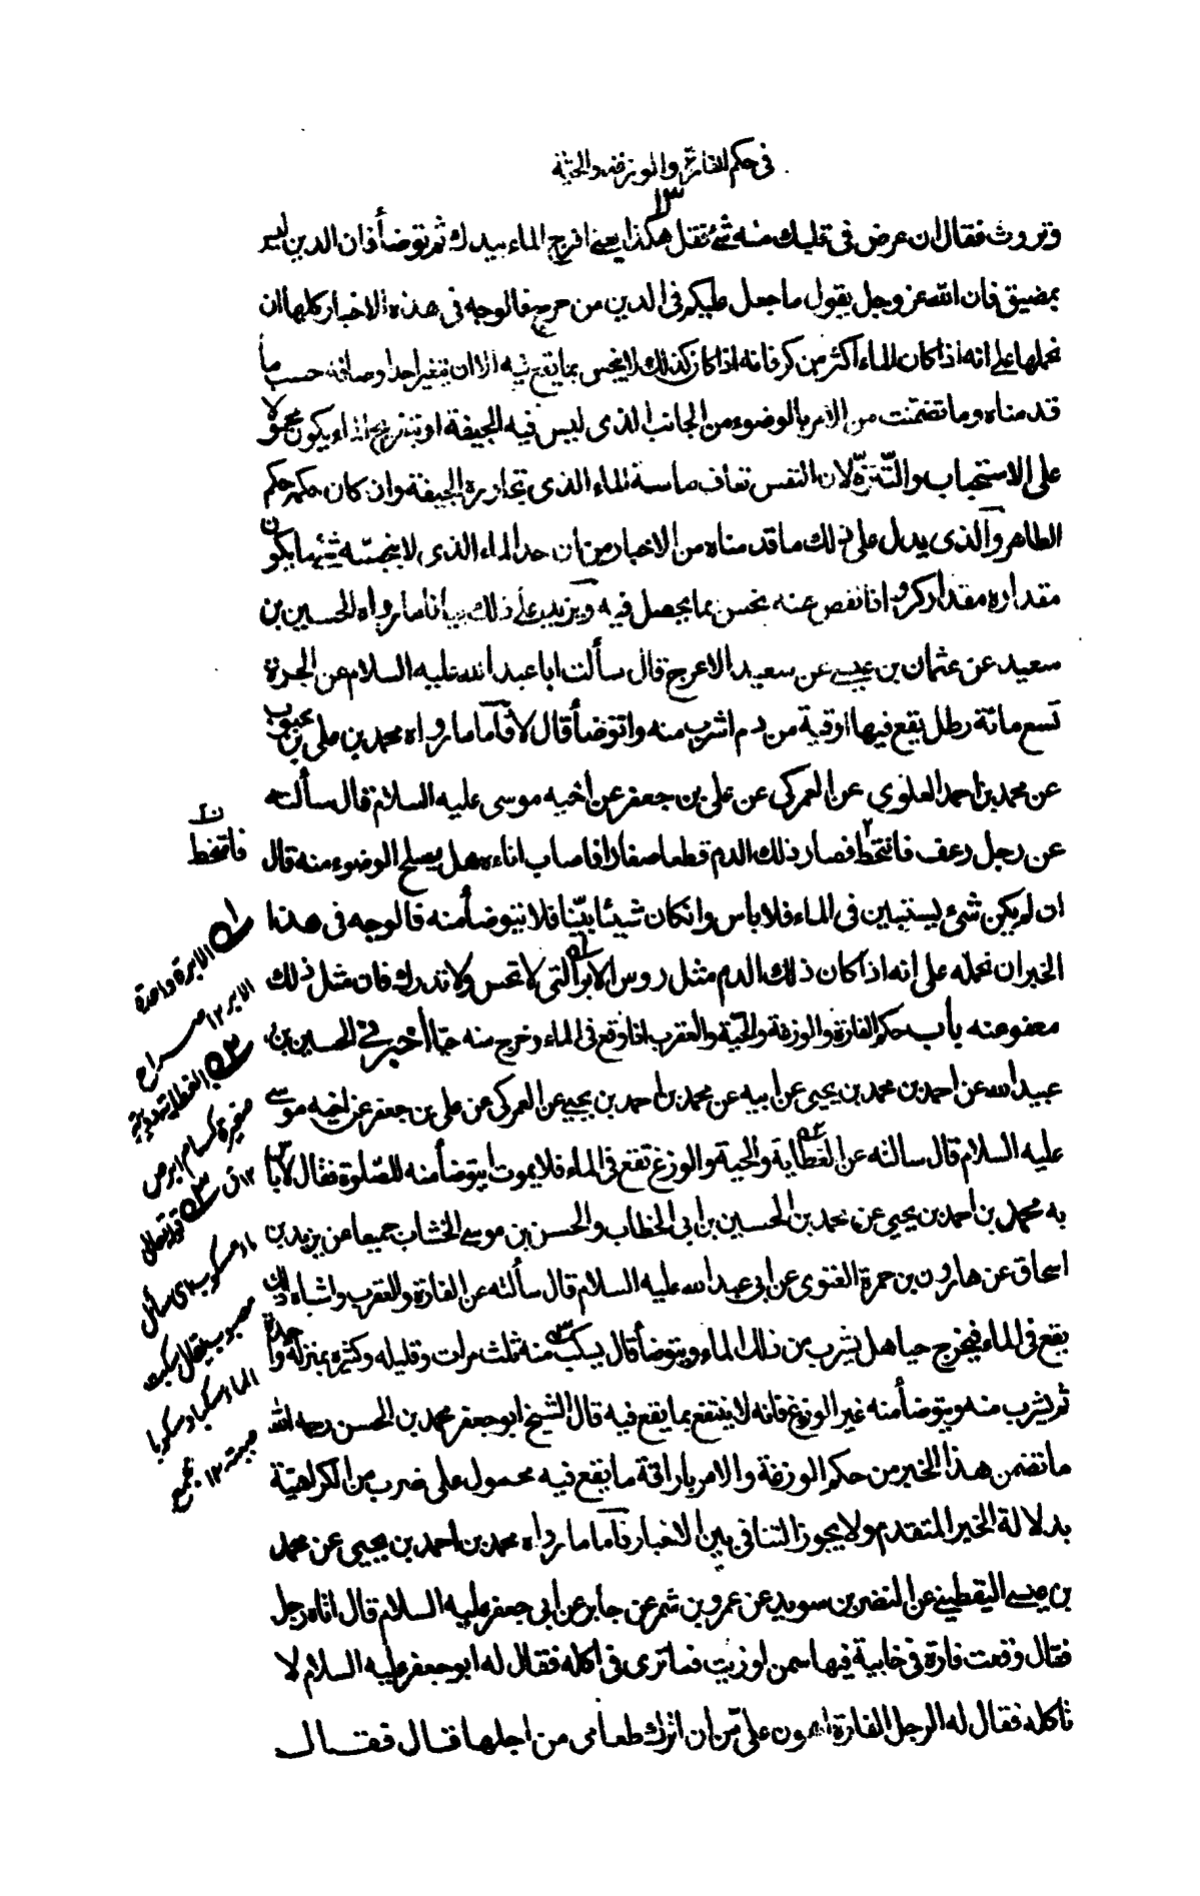 في حكم الفارة والوزغة والحية
١٣
وتروث فقال ان عرض في قلبك منه شئ فقل هكذا يعني افرج الماء بيدك ثم توضأ فان الدين ليس
بمضيق فان الله عز وجل يقول ما جعل عليكم في الدين من حرج فالوجه في هذه الاخبار كلها ان
نحملها على انه اذا كان الماء اكثر من كر فانه اذا كان كذلك لا ينجس بما يقع فيه الا ان يتغير احد اوصافه حسب ما
قدمناه وما تضمنت من الامر بالوضوء من الجانب الذى ليس فيه الجيفة او بتفريج الماء يكون محمولا
على الاستحباب والتنزه لان النفس تعاف مماسة الماء الذى تجاوره الجيفة وان كان حكمه حكم
الطاهر والذى يدل على ذلك ما قدمناه من الاخبار من ان حد الماء الذى لا ينجسه شئ ما يكون
مقداره مقدار كر واذا نقص عنه نجس بما يحصل فيه ويزيد على ذلك بيانا ما رواه الحسين بن
سعيد عن عثمان بن عيسى عن سعيد الاعرج قال سألت ابا عبد الله عليه السلام عن الجرة
تسع مائة رطل يقع فيها اوقية من دم اشرب منه واتوضأ قال لا فاما ما رواه محمد بن علي بن محبوب
عن محمد بن احمد العلوي عن العمركى عن على بن جعفر عن اخيه موسى عليه السلام قال سألته
عن رجل رعف فانتخط فصار ذلك الدم قطعا صغارا فاصاب اناءه هل يصلح الوضوء منه قال
ان لم يكن شئ يستبين في الماء فلا باس وان كان شيئا بيّنا فلا يتوضأ منه فالوجه في هذا
الخبر ان نحمله على انه اذا كان ذلك الدم مثل روس الابر التى لا تحس ولا تدرك فان مثل ذلك
معفو عنه باب حكم الفارة والوزغة والحيّة والعقرب اذا وقع في الماء وخرج منه حيّا أخبرني الحسين بن
عبيد الله عن احمد بن محمد بن يحيى عن ابيه عن محمد بن احمد بن يحيى عن العمركى عن على بن جعفر عن اخيه موسى
عليه السلام قال سالته عن العظاية والحية والوزغ تقع في الماء فلا يموت ايتوضأ منه للصّلوة فقال لا باس
به محمد بن احمد بن يحيى عن محمد بن الحسين بن ابى الخطاب والحسن بن موسى الخشاب جميعا عن يزيد بن
اسحاق عن هارون بن حمزة الغنوى عن ابى عبد الله عليه السلام قال سألته عن الفارة والعقرب واشباه ذلك
يقع في الماء فيخرج حيا هل يشرب من ذلك الماء ويتوضأ قال يسكب منه ثلث مرات وقليله وكثيره بمنزلة واحدة
ثم يشرب منه ويتوضأ منه غير الوزغ فانه لا ينتفع بما يقع فيه قال الشيخ ابو جعفر محمد بن الحسن رحمه الله
ما تضمن هذا الخبر من حكم الوزغة والامر باراقة ما يقع فيه محمول على ضرب من الكراهيّة
بدلالة الخبر المتقدم ولا يجوز التنافى بين الاخبار فاما ما رواه محمد بن احمد بن يحيى عن محمد
بن عيسى اليقطينى عن النضر بن سويد عن عمرو بن شمر عن جابر عن ابى جعفر عليه السلام قال اتاه رجل
فقال وقعت فارة في خابية فيها سمن او زيت فما ترى في اكله فقال له ابو جعفر عليه السلام لا
تاكله فقال له الرجل الفارة اهون علىّ من ان اترك طعامى من اجلها قال فقال
فامتخط
الابرة واحدة
الابر ١٢ صراح
العظاية دويبة
صغيرة كسام ابرص
١٢ ق قوله تعالى
ماء مسكوب اى سائل
مصبوب يقال سكبت
الماء سكبا وسكوبا
صببته ١٢ مجمع